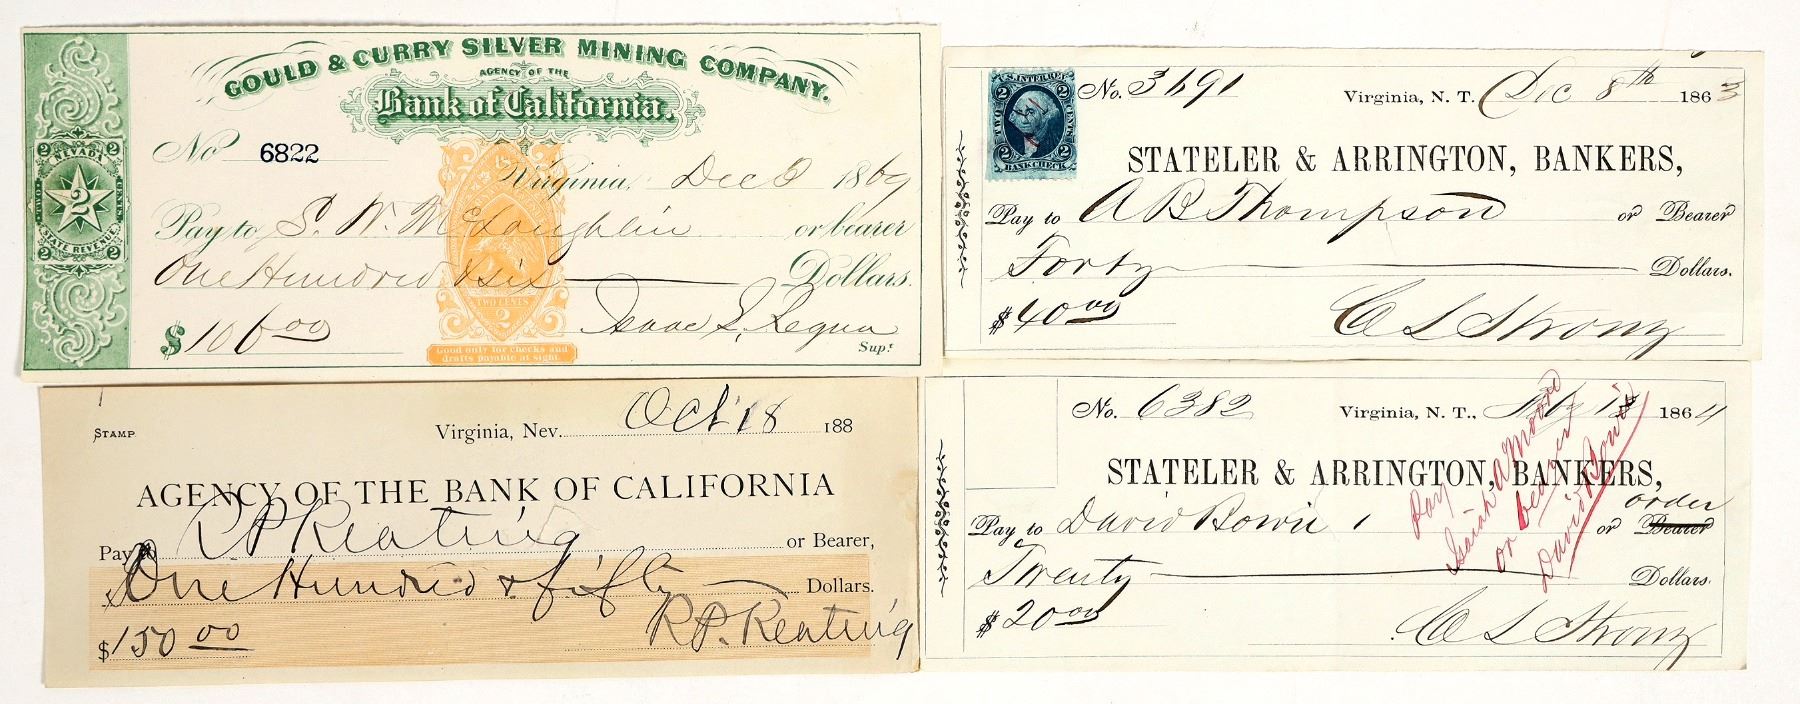 GOULD & CURRY SILVER MINING COMPANY.
AGENCY OF THE
Bank of California.
No 6822
Virginia, Dec 1869
Pay to S. W. McLaughlin or bearer
One Hundred & six Dollars.
$ 106.00
Isaac L. Requa
Supt
2 NEVADA 2
2
TWO CENTS
STATE REVENUE
2 2
TWO CENTS
2
Good only for checks and
drafts payable at sight.
U.S. INTER. REV.
2 2
TWO CENTS
2 2
BANK CHECK
No. 3691
Virginia, N. T. Dec 8th 1863
STATELER & ARRINGTON, BANKERS,
Pay to A B Thompson or Bearer
Forty Dollars.
$ 40.00
C L Strong
STAMP
Virginia, Nev. Oct 18 188
AGENCY OF THE BANK OF CALIFORNIA
Pay to R P Keating or Bearer,
One Hundred & fifty Dollars.
$150.00
R P. Keating
No. 6382
Virginia, N. T., 1864
STATELER & ARRINGTON, BANKERS,
order
Pay to David Bowie or Bearer
Twenty Dollars.
$ 20.00
C L Strong
Pay
Isaiah A Moore
or bearer
David Bowie